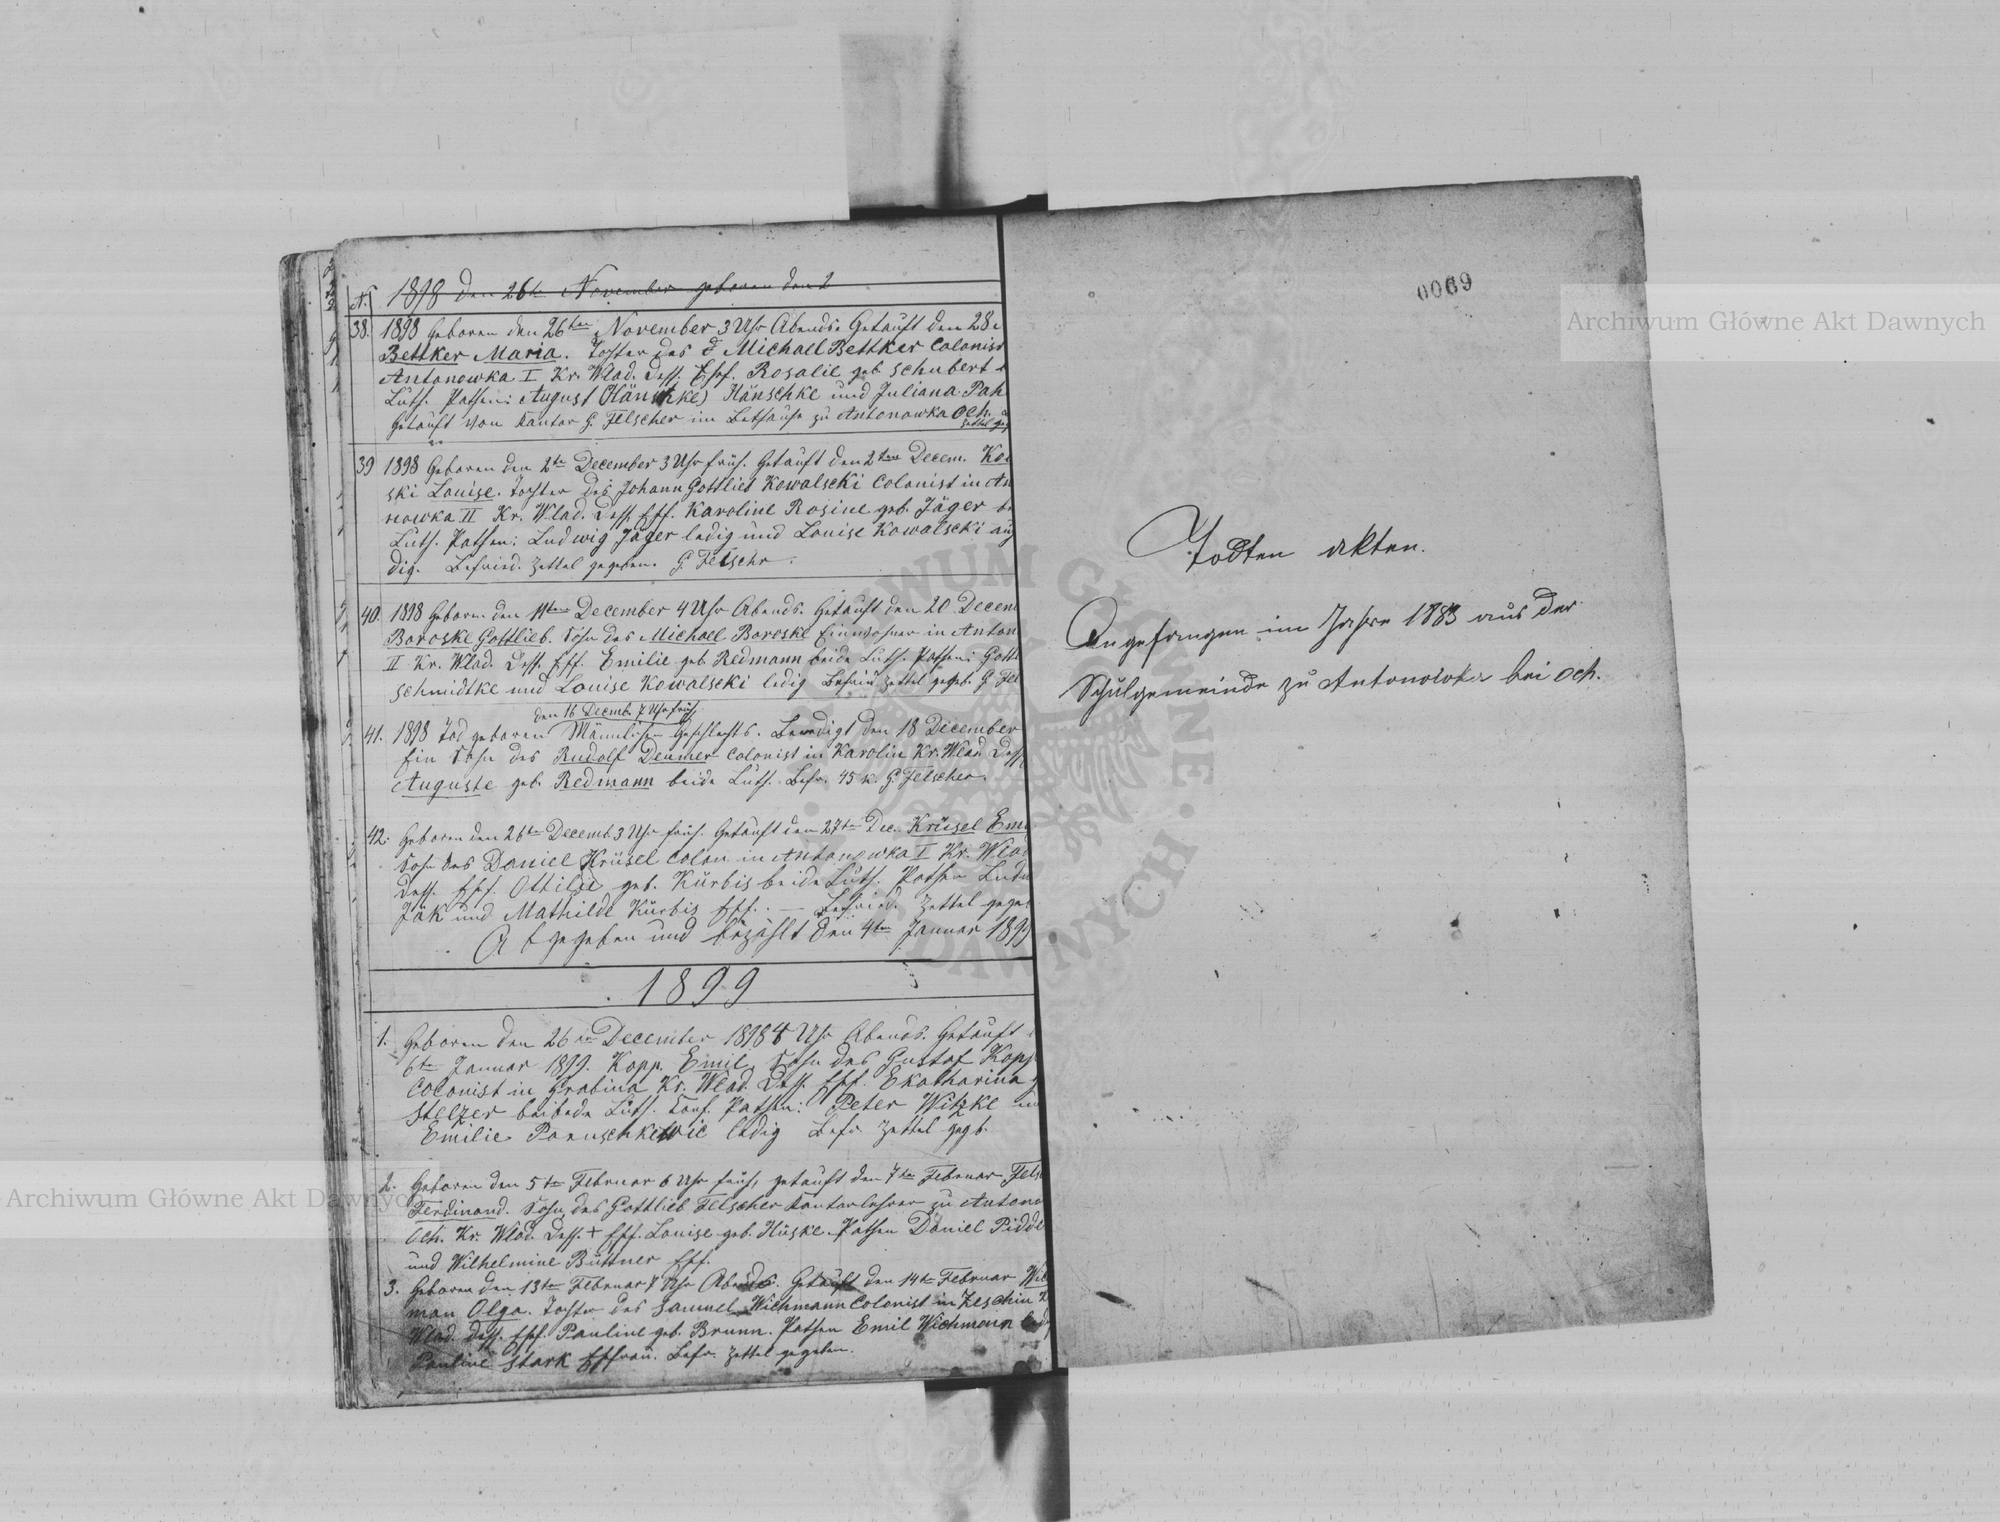 0069
Archiwum Główne Akt Dawnych
N.
1898 den 26ten November geboren den 2
38. 1898 Geboren den 26ten November 3 Uhr Abends. Getauft den 28
Bettker Maria. Tochter des Michael Bettker Colonist
Antonowka I Kr. Wlad. dess. Ehf. Rosalie geb. Schubert
Luth. Pathen: August (Hänschke) Hänschke und Juliana Pah
Getauft von Kantor G. Felscher im Bethause zu Antonowka Och.
Zettel geg
39 1898 Geboren den 2te December 3 Uhr früh. Getauft den 2ten Decem. Kow
ski Louise. Tochter des Johann Gottlieb Kowalscki Colonist in An
nowka II Kr. Wlad. dess. Ehf. Karoline Rosine geb. Jäger be
Luth. Pathen: Ludwig Jäger ledig und Louise Kowalscki auch
dig. Befried. Zettel gegeben. G. Felschr.
40. 1898 Geboren den 11ten December 4 Uhr Abends. Getauft den 20 Decem
Boroske Gottlieb. Sohn des Michael Boroske Einwohner in Anton
II Kr. Wlad. dess. Ehf. Emilie geb. Redmann beide Luth. Pathen: Gottl
Schmidtke und Louise Kowalscki ledig Befried Zettel gegeb. G Fel
den 16 Decemb. 7 Uhr früh
41. 1898 Tod geboren Männlichen Geschlechts. Beerdigt den 18 December
Ein Sohn des Rudolf Deumer Colonist in Karolin Kr. Wlad. dess
Auguste geb. Redmann beide Luth. Befr. 45 k. G. Felscher.
42. Geboren den 26ten Decemb. 3 Uhr früh. Getauft den 27ten Dec. Krüsel Emi
Sohn des Daniel Krüsel Colon in Antonowka I Kr. Wlad
dess. Ehf. Ottilie geb. Kürbis beide Luth. Pathen Ludw
Jäk und Mathilde Kürbis Ehf. — Befried. Zettel gege
Abgegeben und bezahlt den 4ten Januar 1899
1899
1. Geboren den 26ten December 1898 Uhr Abends. Getauft
6ten Januar 1899. Kopp. Emil. Sohn des Gustaf Kopp
Colonist in Grabina Kr. Wlad. Dess. Ehf. Ekatharina
Stelzer beibede Luth. Conf. Pathen: Peter Witzke un
Emilie Paruschkewic ledig Befr Zettel gegb.
2. Geboren den 5ten Februar 6 Uhr früh, getauft den 7ten Februar Fels
Ferdinand. Sohn des Gottlieb Felscher Kantorlehrer zu Antono
Och. Kr. Wlad. Dess. + Ehf. Louise geb. Hüske. Pathen Daniel Pidde
und Wilhelmine Büttner Ehf.
3. Geboren den 13ten Februar Uhr Abends. Getauft den 14ten Februar Wich
man Olga. Tochter des Samuel Wichmann Colonist in Zeschin
Wlad. Dess. Ehf. Pauline geb. Brunn. Pathen Emil Wichmann
Pauline Stark Ehfrau. Befr. Zettel gegeben.
Todten akten.
Angefangen im Jahre 1883 aus der
Schulgemeinde zu Antonowka bei Och.
ARCHIWUM GŁÓWNE AKT DAWNYCH
Archiwum Główne Akt Dawnych